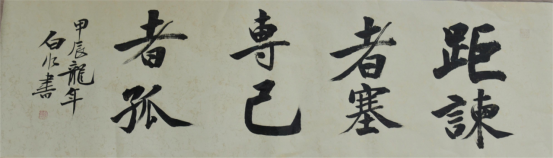 距諫
者塞
専己
者孤
甲辰龍年
白水書